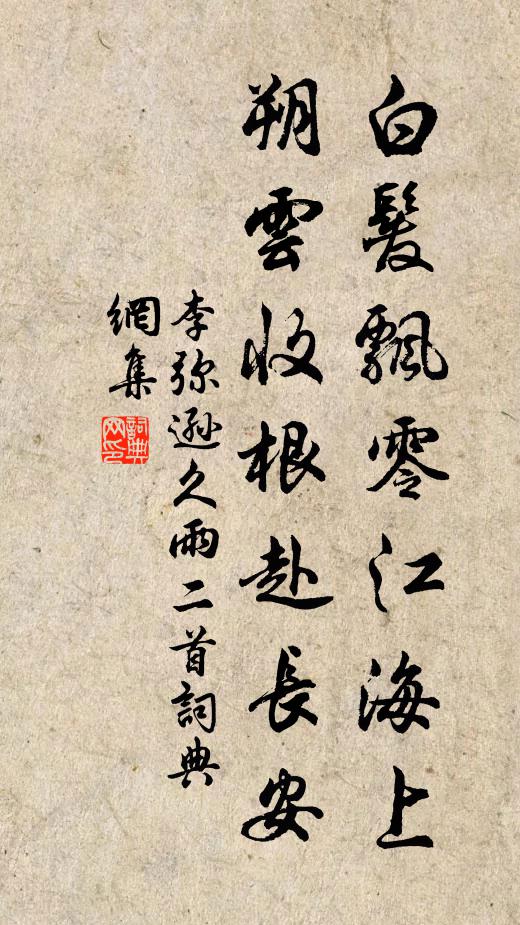 白髮飄零江海上
朔雲收根赴長安
李弥遜久雨二首詞典
網集
詞典
网印